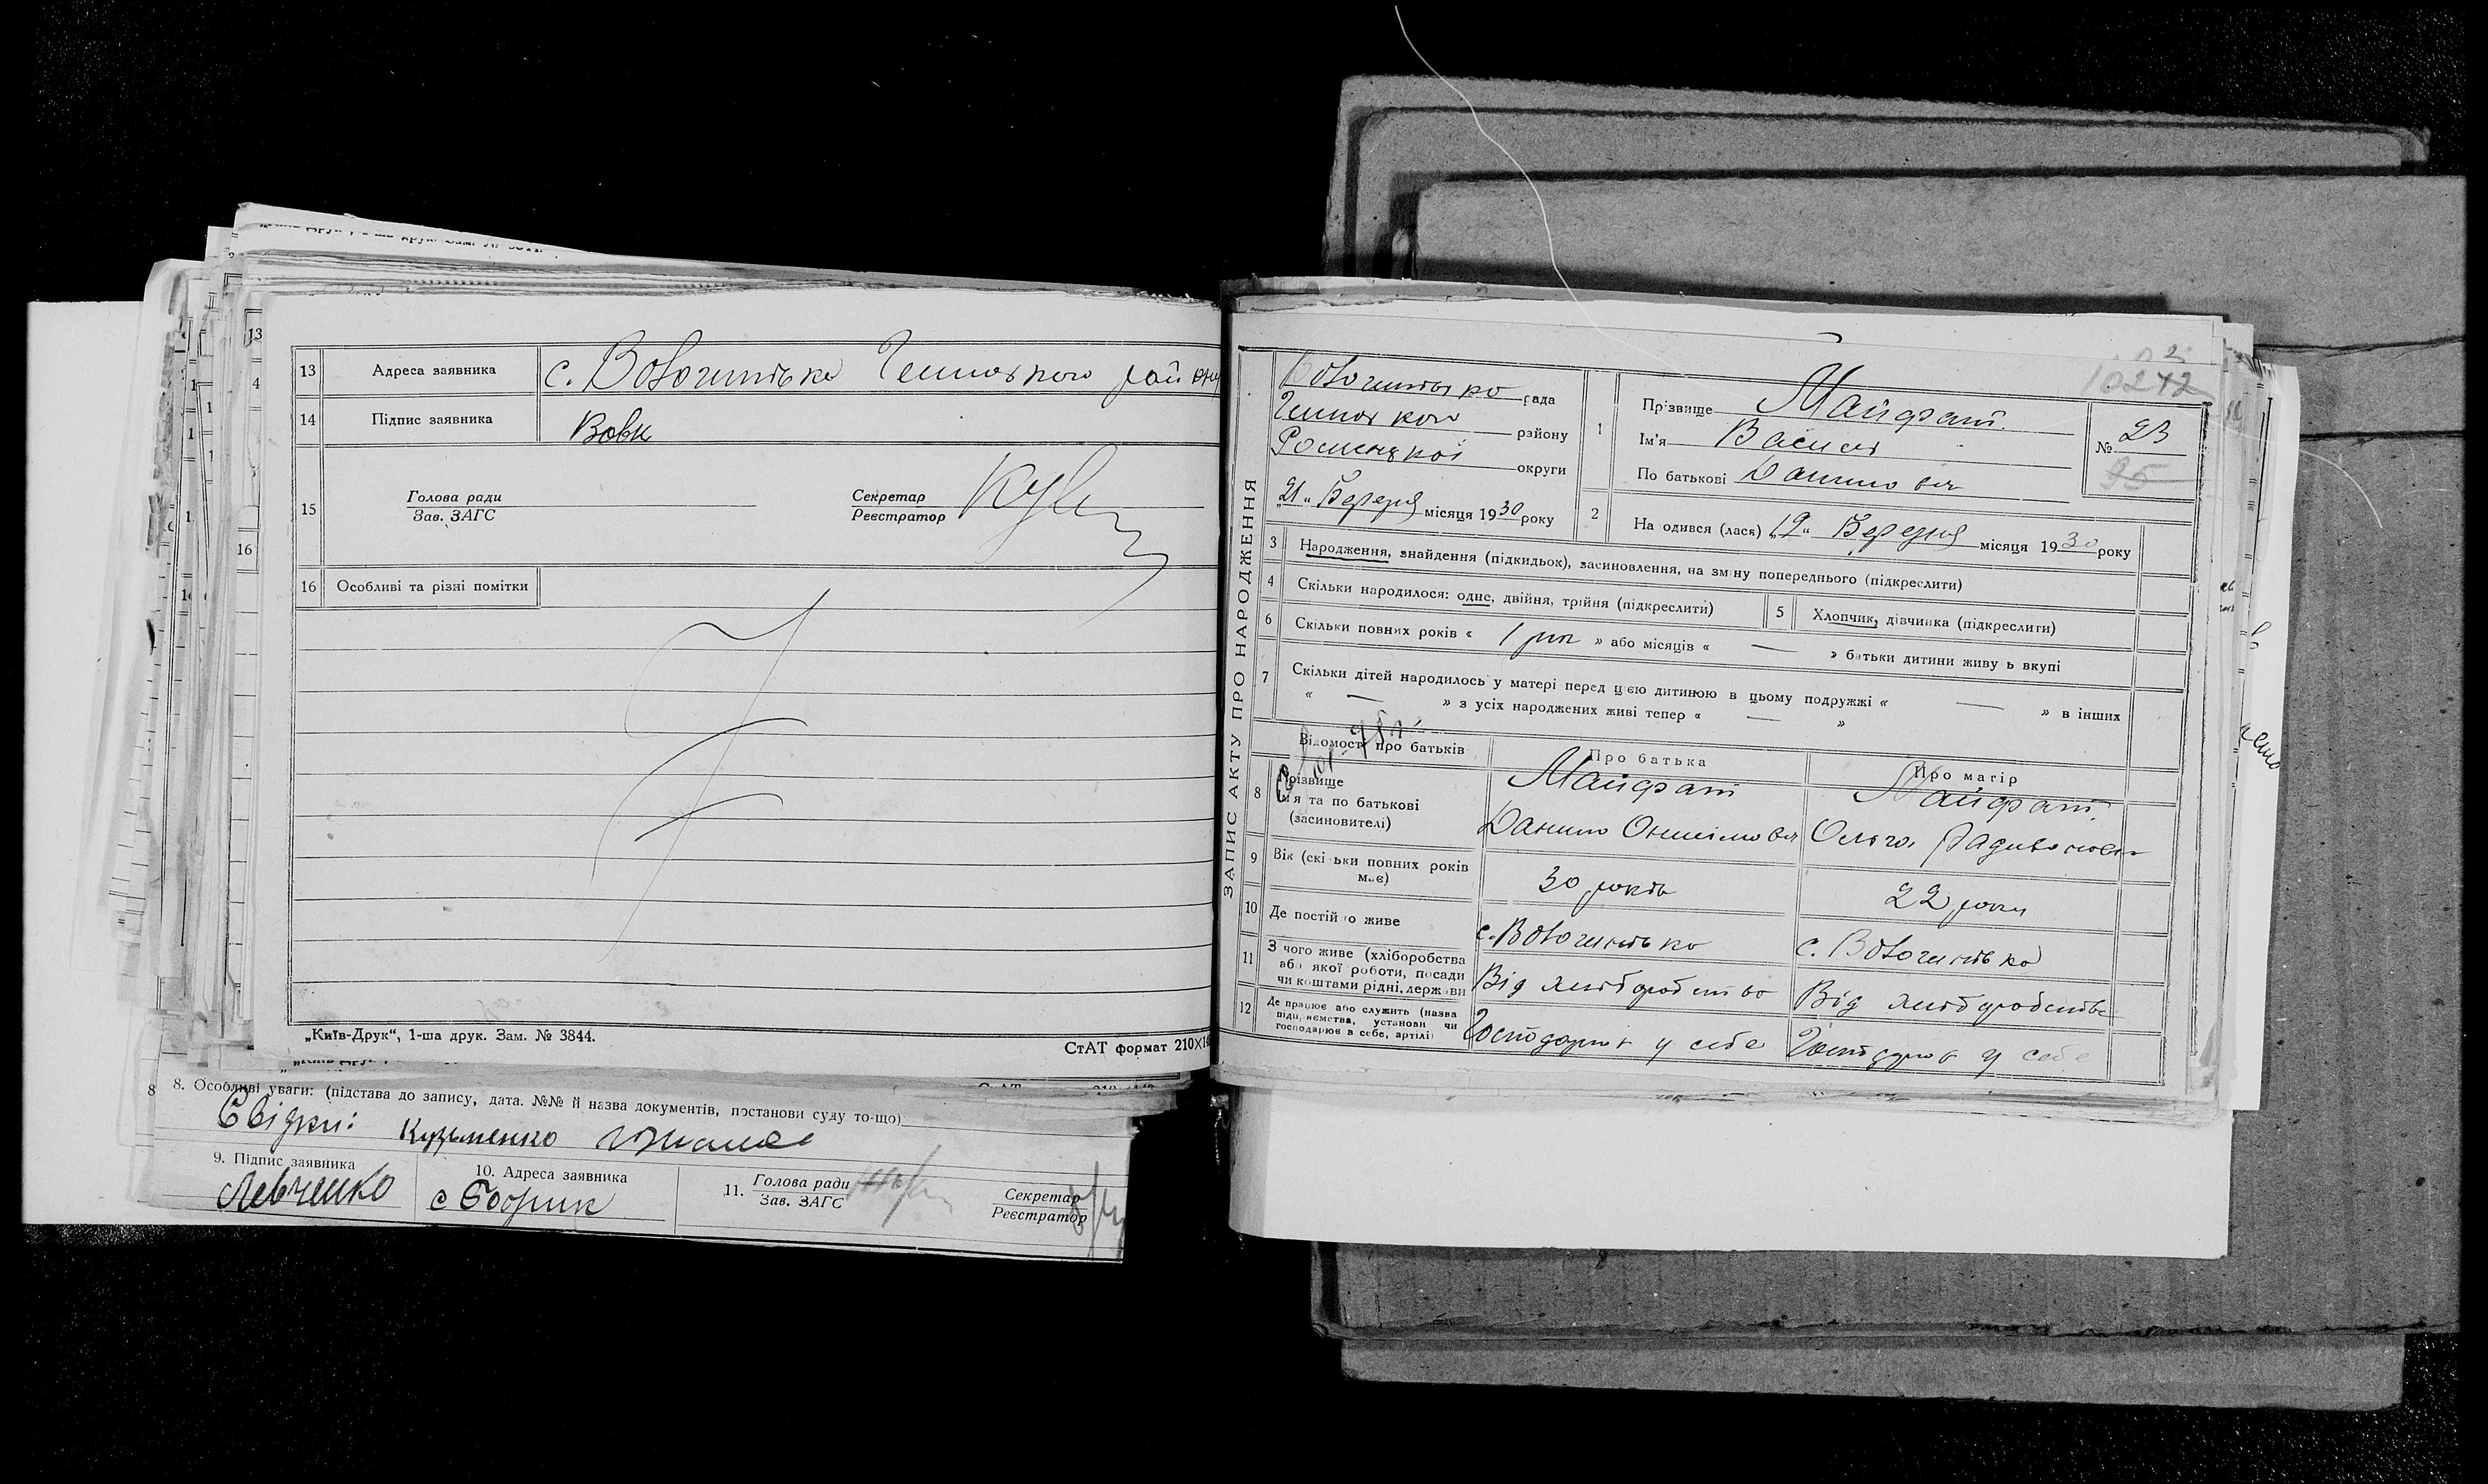 13 Адреса заявника с. Вовчинська
14 Підпис заявника Вовк
15 Голова ради Секретар
Зав. ЗАГС Реєстратор
16 Особливі та різні помітки
„Київ-Друк“, 1-ша друк. Зам. № 3844.
СтАТ формат 210×14
8 8. Особливі уваги: (підстава до запису, дата. №№ й назва документів, постанови суду то-що)
Свідки: Кузьменко
9. Підпис заявника 10. Адреса заявника 11. Голова ради Секретар
Зав. ЗАГС Реєстратор
Левченко с Бобрик
ЗАПИС АКТУ ПРО НАРОДЖЕННЯ
рада
району
Роменської округи
„21“ Березня місяця 1930 року
1 Прізвище Майфат
Ім'я Василь
По батькові Данилович
№ 23
2 На одився (лася) „19“ Березня місяця 1930 року
3 Народження, знайдення (підкидьок), засиновлення, на зміну попереднього (підкреслити)
4 Скільки народилося: одне, двійня, трійня (підкреслити) 5 Хлопчик, дівчинка (підкреслити)
6 Скільки повних років « 1 рік » або місяців « — » батьки дитини живу ь вкупі
7 Скільки дітей народилось у матері перед цією дитиною в цьому подружжі « — » в інших
« — » з усіх народжених живі тепер « — »
Відомості про батьків Про батька Про матір
8 Прізвище Майфат Майфат
Ім'я та по батькові
(засиновителі) Данило Онисімович Ольга
9 Вік (скільки повних років має) 30 років 22 роки
10 Де постійно живе
11 З чого живе (хліборобства або якої роботи, посади чи коштами рідні, держави Від хліборобства Від хліборобства
12 Де працює або служить (назва підприємства, установи чи господарює в себе, артілі) Господарює у себе Господарює у себе